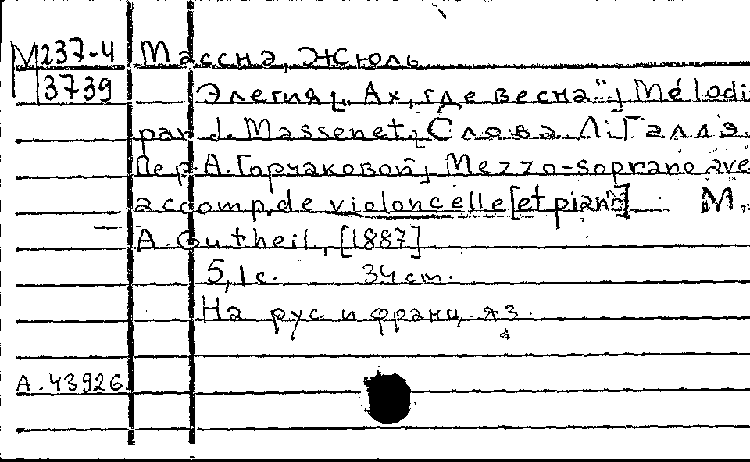 М237-4 Массна, Жюль
3739 Элегия [„Ах, где весна"] Mélodi
par J. Massenet, Слова Л. Галлэ.
Пер. А. Горчаковой, Mezzo-soprano ave
accomp. de violoncelle [et piano] М.
A. Gutheil, [1887]
5,1 с. 34 cm.
На рус и франц яз.
А.43926